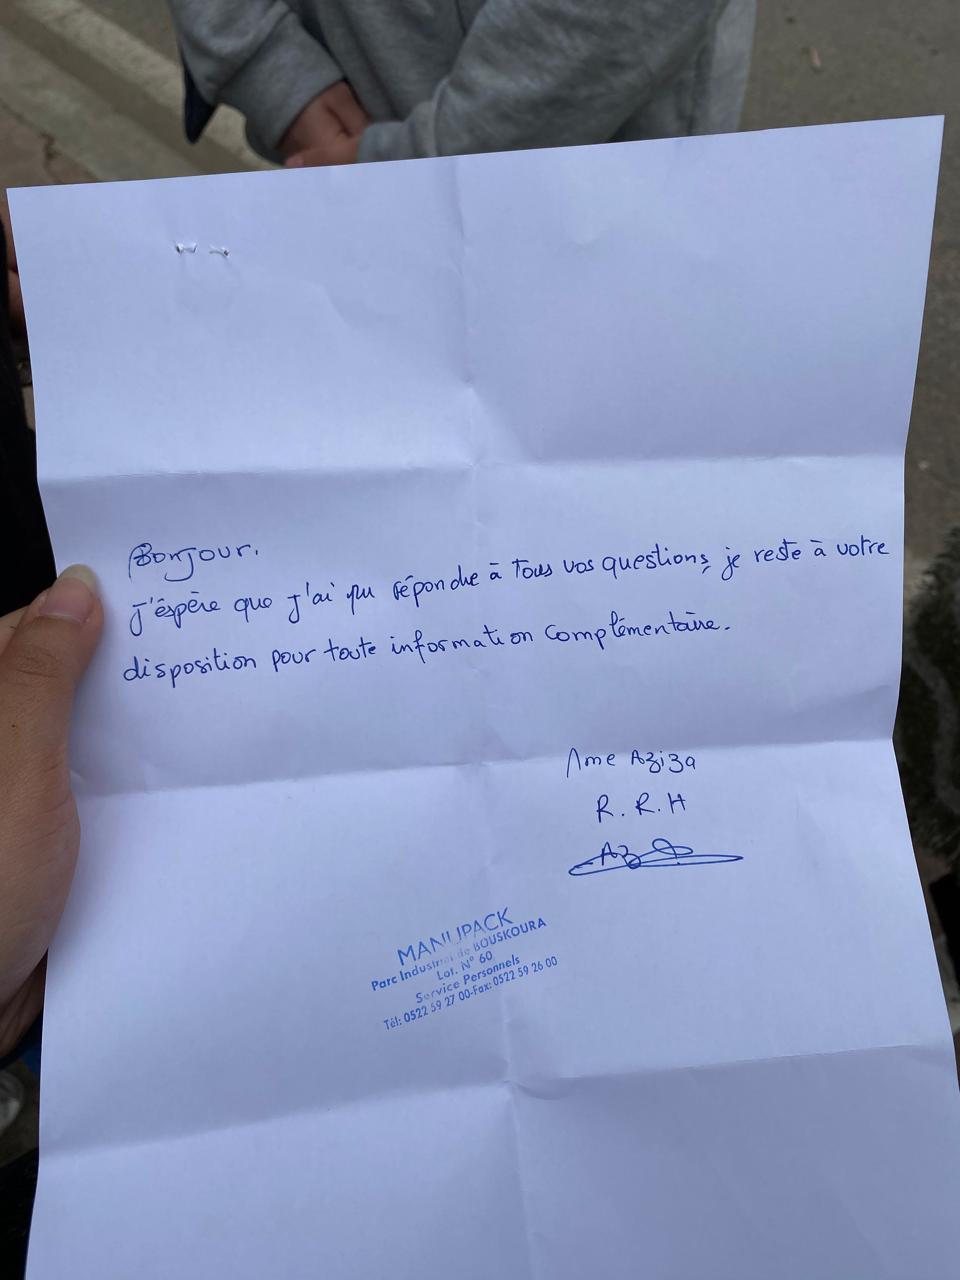 Bonjour.
J'éspère que j'ai pu répondre à tous vos questions, je reste à votre
disposition pour toute information complémentaire.
Mme Aziza
R.R.H
MANUPACK
Parc Industriel de BOUSKOURA
Lot. N° 60
Service Personnels
Tél: 0522 59 27 00-Fax: 0522 59 26 00